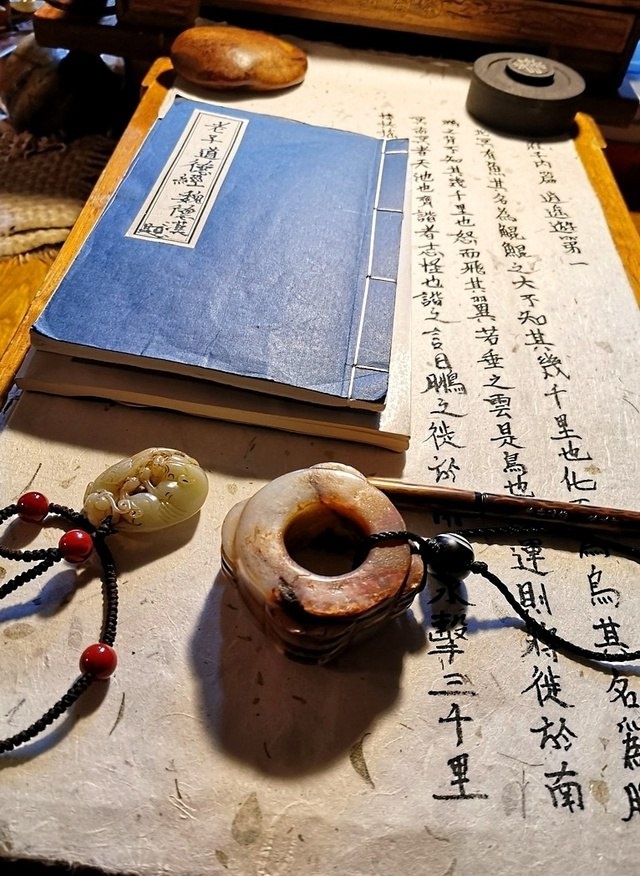 老子道德經
子內篇 逍遙遊第一
冥有魚其名為鯤鯤之大不知其幾千里也化 為鳥其名為鵬
之背不知其幾千里也怒而飛其翼若垂之雲是鳥也 運則將徙於南
冥南冥者天池也齊諧者志怪也諧之言曰鵬之徙於 水擊三千里